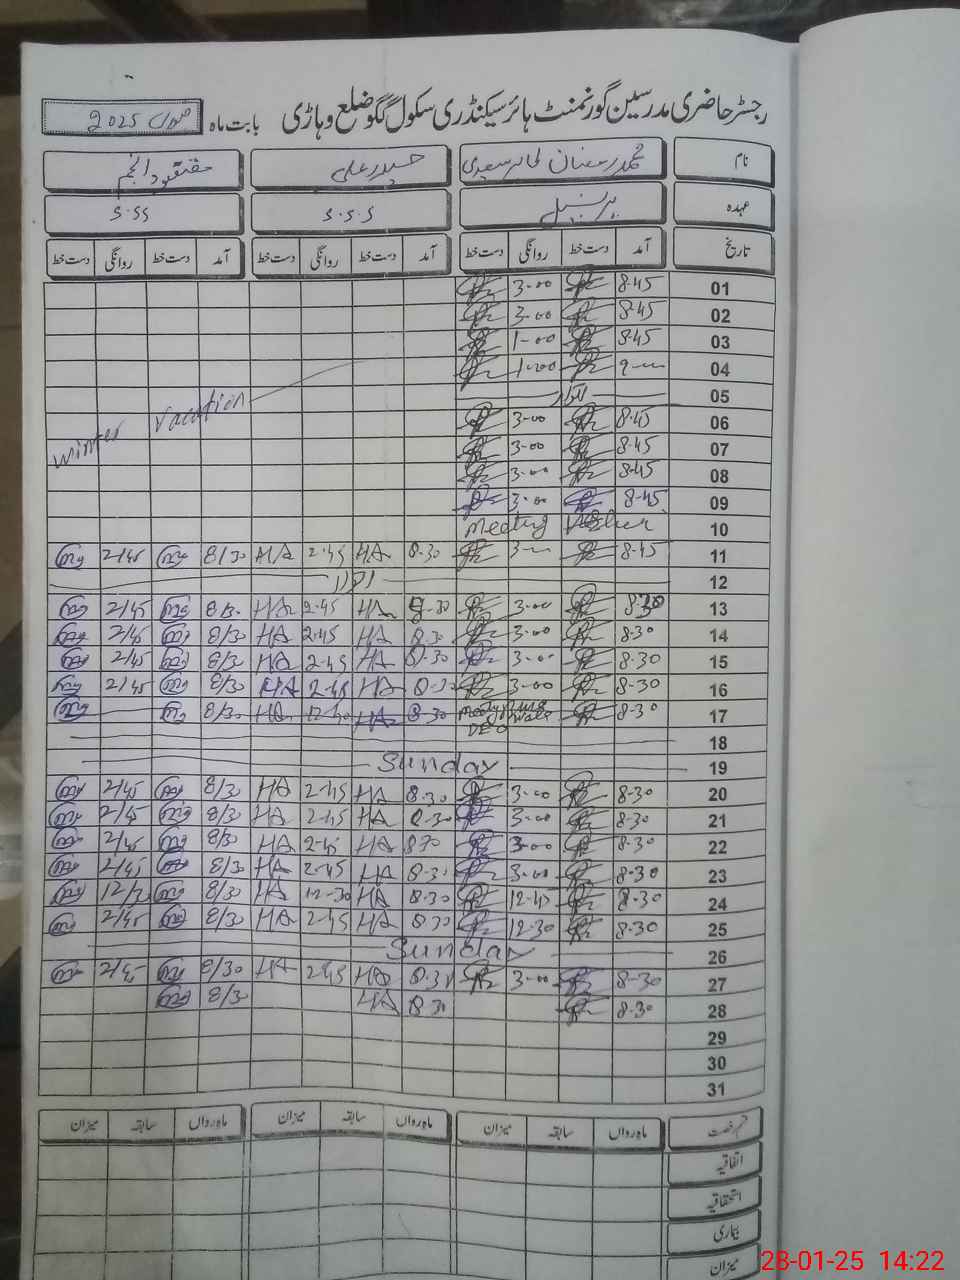 رجسٹر حاضری مدرسین گورنمنٹ ہائر سیکنڈری سکول گگو ضلع وہاڑی بابت ماہ جنوری 2025
نام محمد رمضان سعیدی حیدر علی
عہدہ پرنسپل S.S.S S.SS
تاریخ آمد دست خط روانگی دست خط آمد دست خط روانگی دست خط آمد دست خط روانگی دست خط
01 8.45 3-00
02 8.45 3-00
03 8.45 1-00
04 9- 1-00
05 اتوار
06 8.45 3-00
07 8.45 3-00
08 8.45 3-00
09 8-45 3-00
winter vacation
10 Meeting
11 8-45 3- 8.30 HA 2.45 HA 8/30 2/45
12 اتوار
13 8.30 3-00 8-30 HA 2-45 HA 8/30 2/45
14 8.30 3-00 8.30 HA 2.45 HA 8/30 2/45
15 8.30 3-00 8-30 HA 2-45 HA 8/30 2/45
16 8-30 3-00 8-30 HA 2-45 HA 8/30 2/45
17 8-30 DEO 8-30 HA 12-30 HA 8/30
18
19 Sunday
20 8-30 3-00 8.30 HA 2-45 HA 8/30 2/45
21 8-30 3-00 8-30 HA 2-45 HA 8/30 2/45
22 8-30 3-00 830 HA 2-45 HA 8/30 2/45
23 8-30 3-00 8-30 HA 2-45 HA 8/30 2/45
24 8-30 12-45 8-30 HA 12-30 HA 8/30 12/30
25 8-30 12-30 8-30 HA 2-45 HA 8/30 2/45
26 Sunday
27 8-30 3-00 8-30 HA 2-45 HA 8/30 2/45
28 8-30 8.30 HA 8/30
29
30
31
قسم رخصت ماہ رواں سابقہ میزان ماہ رواں سابقہ میزان ماہ رواں سابقہ میزان
اتفاقیہ
استحقاقیہ
بیماری
میزان
28-01-25 14:22